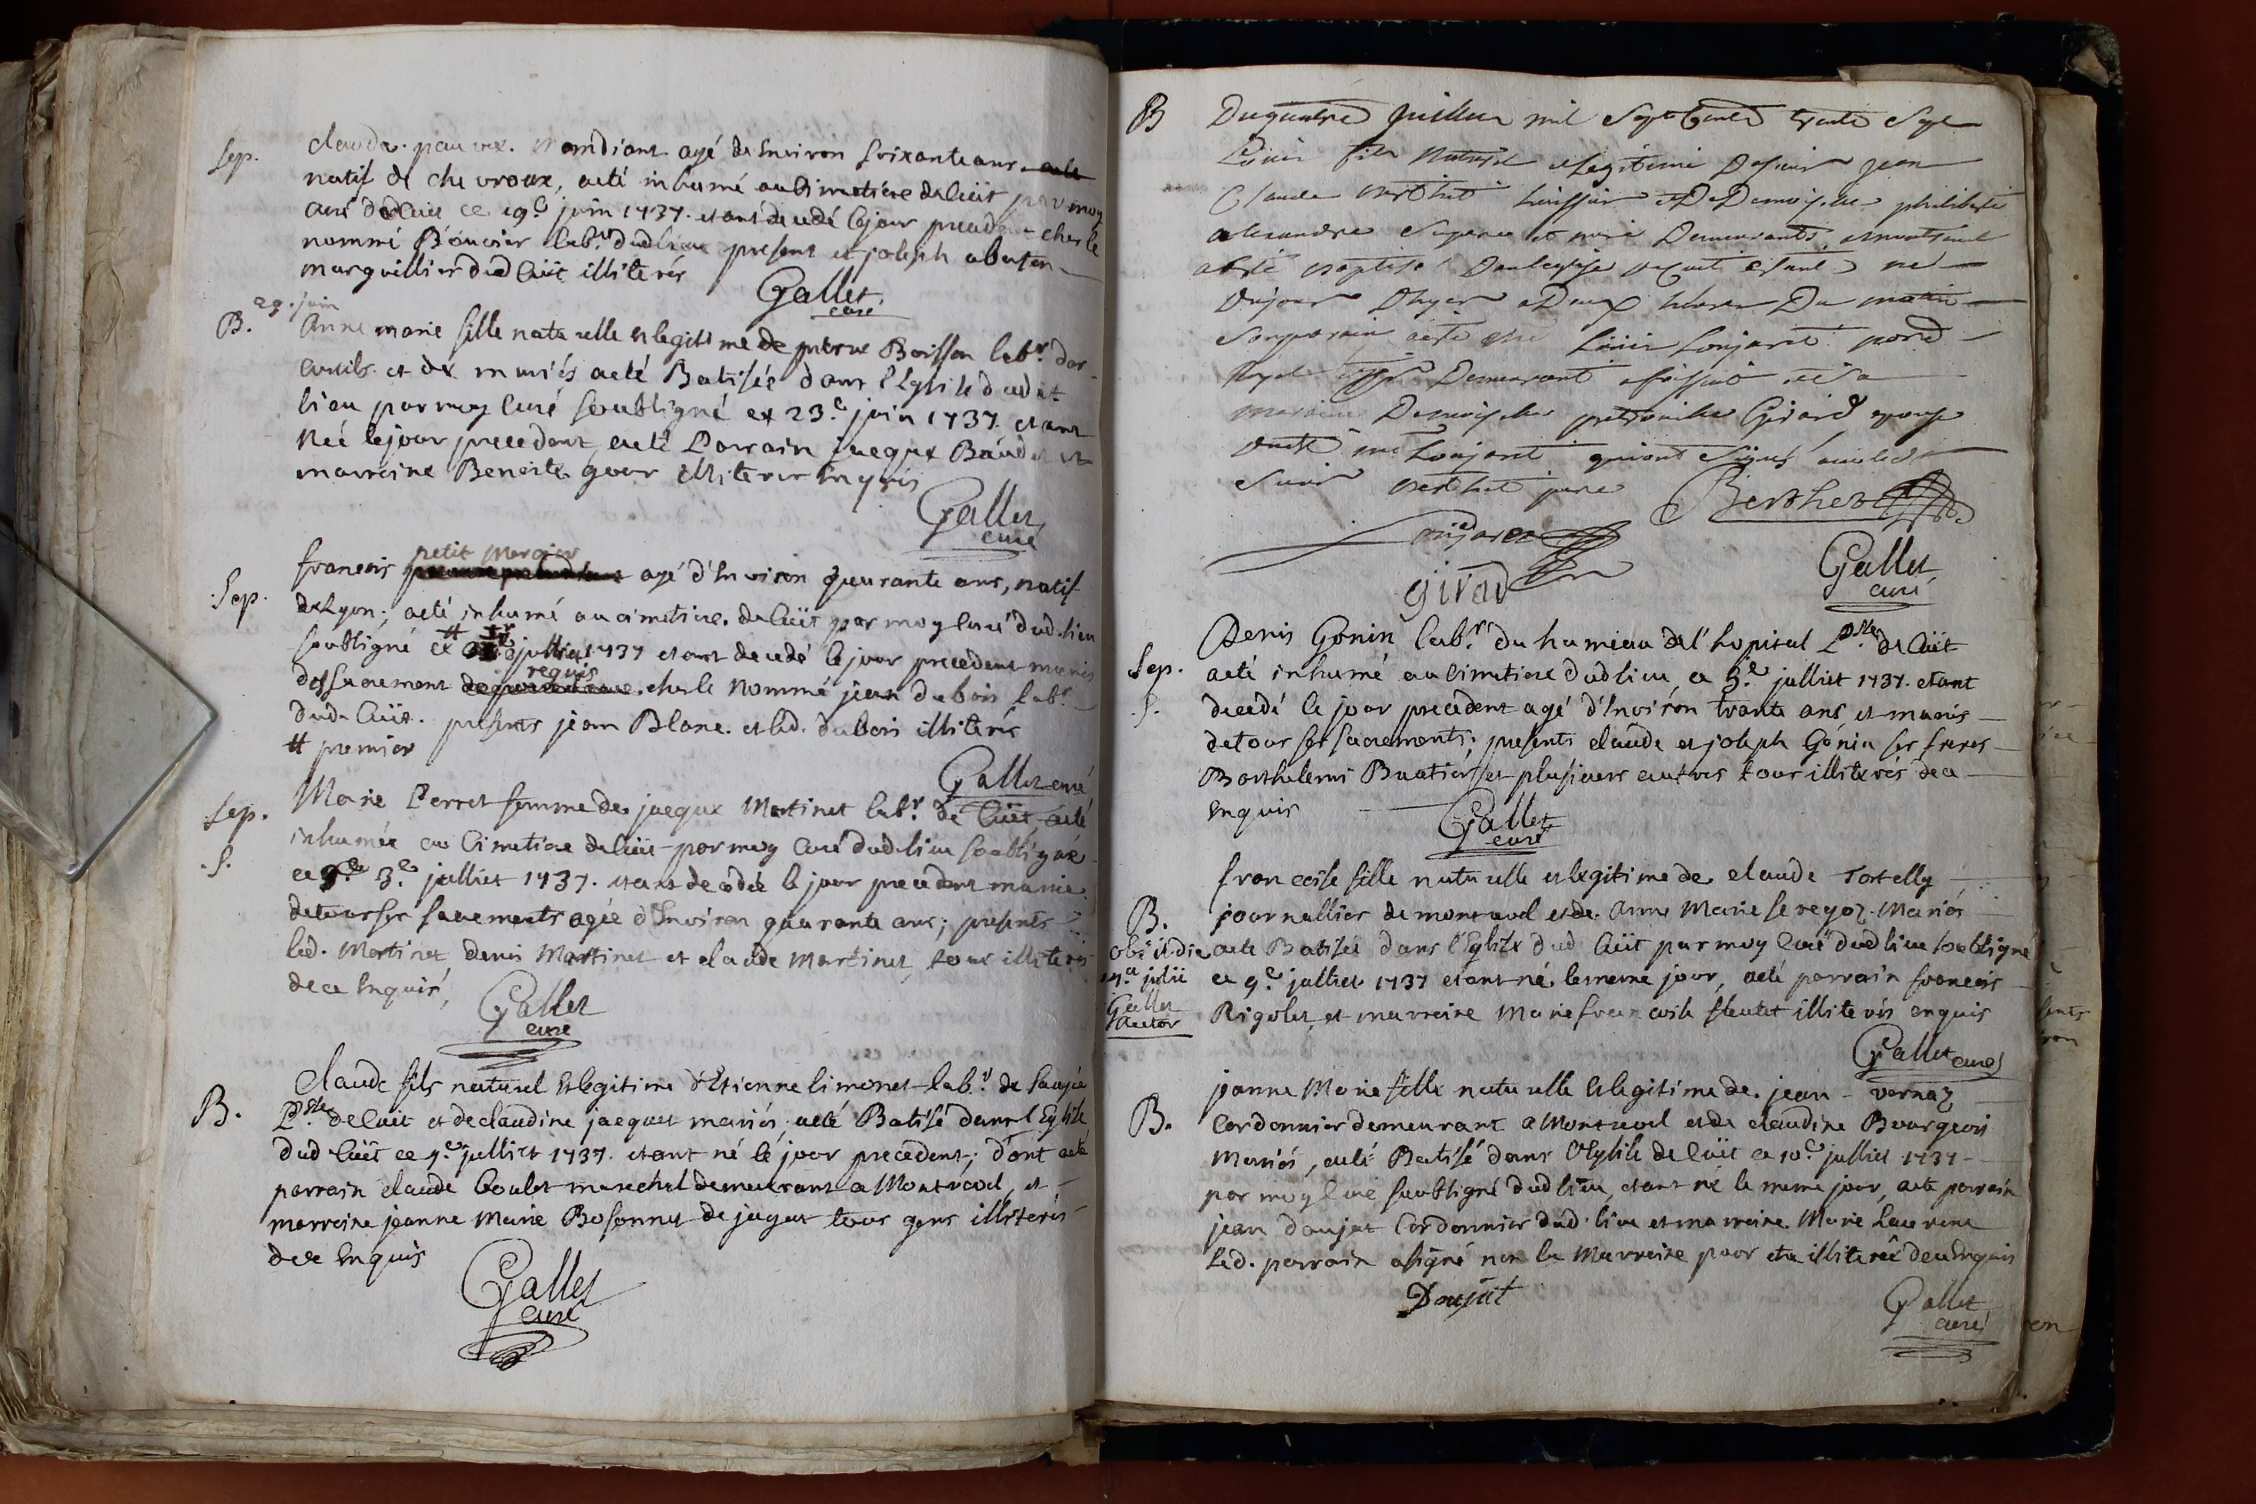 Sep. claude pauvre mandiant agé de Environ soixante ans
natif de chevroux, aeté inhumé au Cimetiere de Cüit par moy
curé de Cuit ce 19.e juin 1737. etant decedé le jour precedent chez le
nommé Bouvier lab.r dud lieu present et joseph
marguillier dud Cüit illiterés
Gallet
curé
29. juin
B. Anne marie fille naturelle et legitime de pierre Boisson lab.r
et de mariés aeté Batisée dans l'Eglise dudit
lieu par moy curé soubsigné ce 23.e juin 1737. etant
neé le jour precedent, aeté Parrain jacque et
marreine Benoite goar illiterés Enquis
Gallet
curé
petit Mercier
Sep. francois agé d'Environ quarante ans, natif
de Lyon; aeté inhumé au cimetiere de Cüit par moy curé dud. lieu
soubsigné ce # juillet 1737 etant decedé le jour precedent munis
requis
des sacrement chez le Nommé jean dubois lab.r
dud. Cüit. presents jean Blanc. et led. dubois illiterés
# premier
Gallet curé
Sep. Marie Perret femme de jacque Martinet lab.r de Cüit aeté
inhumée au Cimetiere de Cüit par moy Curé dud. lieu soubsigné
.S. ce 3.e julliet 1737. etant decedée le jour precedent munie
de tous ses sacrements agée d'Environ quarante ans; presents
led. Martinet denis Martinet et claude Martinet, tous illiterés
de ce Enquis,
Gallet
curé
Claude fils naturel et legitime d'Etienne limonet lab.r de
B. P.sse de Cuit et de claudine jacquet mariés; aeté Batisé dans l'Eglise
dud Cüit ce julliet 1737. etant né le jour precedent; dont aeté
parrain claude Coulet marechal demeurant a Montrevel, et
marreine jeanne Marie Bosonnet de jayat tous gens illiterés
de ce Enquis
Gallet
curé
B Du quatre Juillet mil Sept Cents trente Sept
Loüis fils Naturel et Legitime De Sieur Jean
Claude Berthet huissier et De Demoiselle philiberte
alexandre
aesté Baptisé Dans l'eglise de Cuet Estant né
du jour D'hyer a Deux heures Du matin
Son parain aesté Loüis Lonjaret
Royal Demeurant et sa
maraine Demoiselle petronille Girard epouse
dudit me Lonjaret qui ont Signé avec led
Sieur Berthet pere
Berthet
Lonjaret
girad
Gallet
curé
Denis Gonin, lab.r du hameau de l'hopital P.sse de Cüit
Sep. aeté inhumé au Cimetiere dud lieu ce 5.e julliet 1737. etant
.S. decedé le jour precedent agé d'Environ trante ans et munis
de tous ses sacrements; presents claude et joseph Gonin ses freres
Barthelemi Buatier et plusieurs autres tous illiterés de ce
enquis
Gallet
curé
francoise fille naturelle et legitime de claude Tortelly
B. journallier de montrevel et de Anne Marie Mariés
obiit die aeté Batisée dans l'Eglise dud Cüit par moy Curé dud lieu soubsigné
julii ce 9.e julliet 1737 etant né le meme jour, aeté parrain francois
Gallet Rigolet, et marreine Marie francoise illiterés enquis
Rector
Gallet curé
jeanne Marie fille naturelle et legitime de. jean vernaz
B. Cordonnier demeurant a Montrevel et de claudine Bourgeois
Mariés, aeté Batisé dans l'Eglise de Cüit ce 10.e julliet 1737
par moy Curé soubsigné dud lieu, etant né le meme jour, aeté parrain
jean doujat Cordonnier dud. lieu et marreine Marie Laurent
led. parrain a signé non la Marreine pour etre illiterée de ce Enquis
Doujat
Gallet
curé